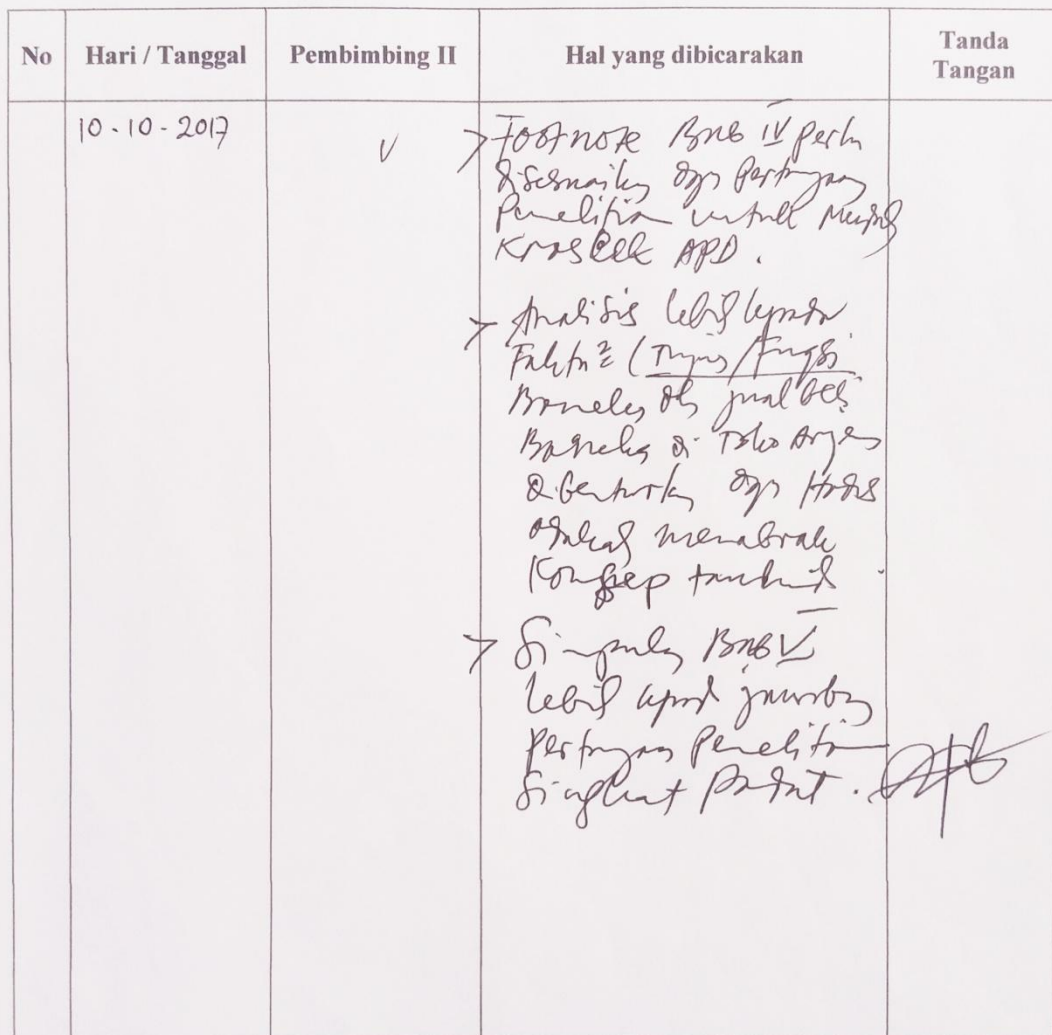 No
Hari / Tanggal
Pembimbing II
Hal yang dibicarakan
Tanda
Tangan
10-10-2017
V
> Footnote BAB IV perlu
disesuaikan dgn Pertanyaan
Penelitian untuk
Kroscek APD.
> Analisis lebih kepada
(Tujuan/Fungsi
Boneka jual beli
Boneka di Toko
dibenturkan dgn Hadis
menabrak
Konsep
> Simpulan BAB V
lebih kpd jawaban
Pertanyaan Penelitian
Singkat Padat.